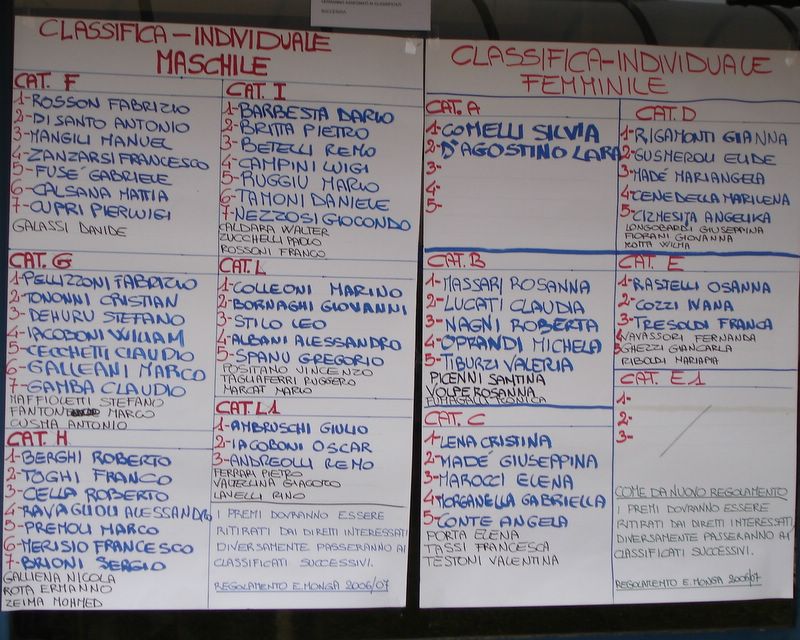 CLASSIFICA-INDIVIDUALE
MASCHILE
CAT. F
1-ROSSON FABRIZIO
2-DI SANTO ANTONIO
3-MANGILI MANUEL
4-ZANZARSI FRANCESCO
5-FUSE' GABRIELE
6-CALSANA MATTIA
7-CUPRI PIERLUIGI
GALASSI DAVIDE
CAT. G
1-PELLIZZONI FABRIZIO
2-TONONNI CRISTIAN
3-DEHURU STEFANO
4-IACOBONI WILLIAM
5-CECCHETTI CLAUDIO
6-GALLEANI MARCO
7-GAMBA CLAUDIO
MAFFIOLETTI STEFANO
FANTON MARCO
CUSMA ANTONIO
CAT. H
1-BERGHI ROBERTO
2-TOGHI FRANCO
3-CELLA ROBERTO
4-RAVAGLIOLI ALESSANDRO
5-PREMOLI MARCO
6-MERISIO FRANCESCO
7-BRIONI SERGIO
GALLIENA NICOLA
ROTA ERMANNO
ZEIMA MOHMED
CAT. I
1-BARBESTA DARIO
2-BRITTA PIETRO
3-BETELLI REMO
4-CAMPINI LUIGI
5-RUGGIU MARIO
6-TAMONI DANIELE
7-NEZZOSI GIOCONDO
CALDARA WALTER
ZUCCHELLI PAOLO
ROSSONI FRANCO
CAT. L
1-COLLEONI MARINO
2-BORNAGHI GIOVANNI
3-STILO LEO
4-ALBANI ALESSANDRO
5-SPANU GREGORIO
POSITANO VINCENZO
TAGLIAFERRI RUGGERO
MARCAT MARIO
CAT. L1
1-AMBRUSCHI GIULIO
2-IACOBONI OSCAR
3-ANDREOLLI REMO
FERRARI PIETRO
VALTELLINA GIACOMO
LAVELLI RINO
I PREMI DOVRANNO ESSERE
RITIRATI DAI DIRETTI INTERESSATI
DIVERSAMENTE PASSERANNO AI
CLASSIFICATI SUCCESSIVI.
REGOLAMENTO E.MONGA 2006/07
CLASSIFICA-INDIVIDUALE
FEMMINILE
CAT. A
1-COMELLI SILVIA
2-D'AGOSTINO LARA
3-
4-
5-
CAT. B
1-MASSARI ROSANNA
2-LUCATI CLAUDIA
3-NAGNI ROBERTA
4-OPRANDI MICHELA
5-TIBURZI VALERIA
PICENNI SANTINA
VOLPE ROSANNA
FUMAGALLI
CAT. C
1-LENA CRISTINA
2-MADE' GIUSEPPINA
3-MAROCCI ELENA
4-MORGANELLA GABRIELLA
5-CONTE ANGELA
PORTA ELENA
TASSI FRANCESCA
TESTONI VALENTINA
CAT. D
1-RIGAMONTI GIANNA
2-GUSMEROLI ELIDE
3-MADE' MARIANGELA
4-CENEDELLA MARILENA
5-CIZMESITA ANGELIKA
LONGOBARDI GIUSEPPINA
FIORANI GIOVANNA
WILMA
CAT. E
1-RASTELLI OSANNA
2-COZZI IVANA
3-TRESOLDI FRANCA
4 VAVASSORI FERNANDA
5 GHEZZI GIANCARLA
RIBOLDI MARIAPIA
CAT. E1
1-
2-
3-
COME DA NUOVO REGOLAMENTO
I PREMI DOVRANNO ESSERE
RITIRATI DAI DIRETTI INTERESSATI
DIVERSAMENTE PASSERANNO AI
CLASSIFICATI SUCCESSIVI.
REGOLAMENTO E.MONGA 2006/07